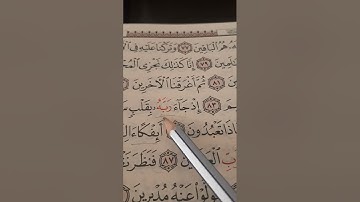 هُمُ ٱلْبَاقِينَ ٧٧ وَتَرَكْنَا عَلَيْهِ فِي ٱلْ
ٱلْعَٰلَمِينَ ٧٩ إِنَّا كَذَٰلِكَ نَجْزِي ٱلْمُ
٨١ ثُمَّ أَغْرَقْنَا ٱلْءَاخَرِينَ
٨٣ إِذْ جَآءَ رَبَّهُۥ بِقَلْبٍ
مَاذَا تَعْبُدُونَ أَئِفْكًا ءَ
ٱلْعَٰلَمِينَ ٨٧ فَنَظَرَ نَ
فَتَوَلَّوْا۟ عَنْهُ مُدْبِرِينَ